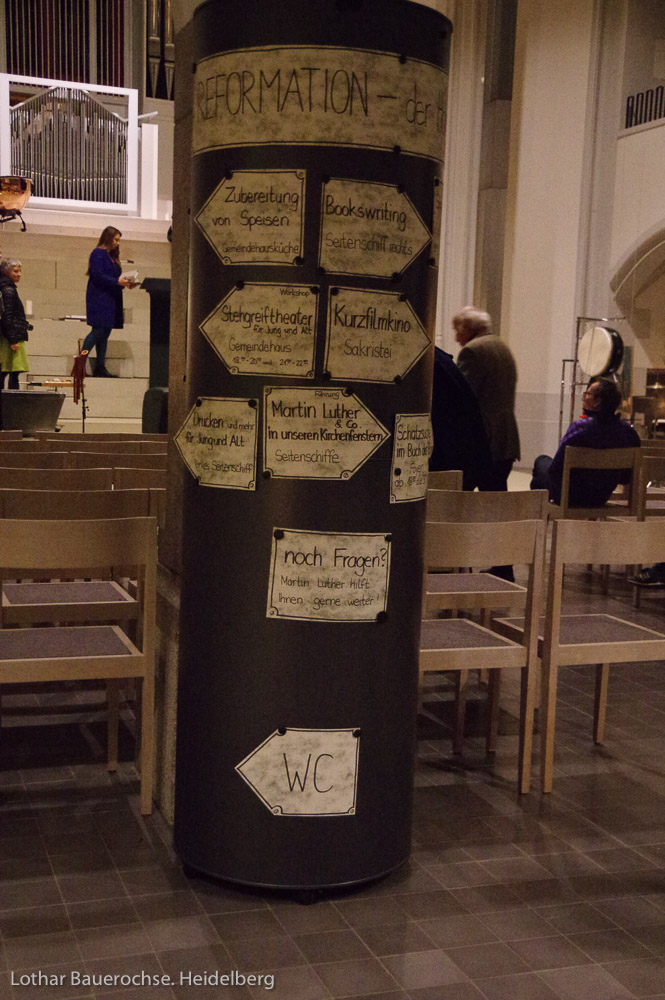 REFORMATION - der
Zubereitung
von Speisen
Gemeindehausküche
Bookswriting
Seitenschiff rechts
Workshop
Stehgreiftheater
für Jung und Alt
Gemeindehaus
Kurzfilmkino
Sakristei
Drucken und mehr
für Jung und Alt
Seitenschiff
Führung
Martin Luther
& Co.
in unseren Kirchenfenstern
Seitenschiffe
Schatzsuche
im Buch der
ab
noch Fragen?
Martin Luther hilft
Ihnen gerne weiter
WC
Lothar Bauerochse. Heidelberg